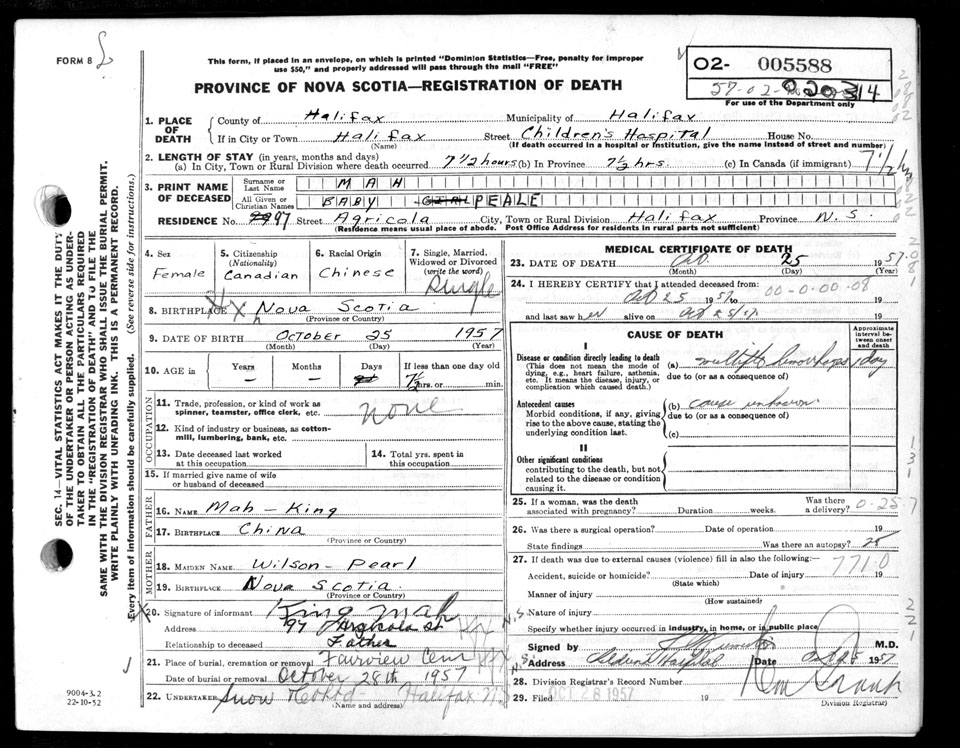 FORM 8
This form, if placed in an envelope, on which is printed "Dominion Statistics—Free, penalty for improper
use $50," and properly addressed will pass through the mail "FREE"
O2- 005588
57-02-
314
For use of the Department only
PROVINCE OF NOVA SCOTIA—REGISTRATION OF DEATH
1. PLACE OF DEATH
County of Halifax Municipality of Halifax
If in City or Town Halifax Street Children's Hospital House No.
(Name) (If death occurred in a hospital or institution, give the name instead of street and number)
2. LENGTH OF STAY (in years, months and days)
(a) In City, Town or Rural Division where death occurred 7 1/2 hours (b) In Province 7 1/2 hrs. (c) In Canada (if immigrant) 7 1/2 h
3. PRINT NAME OF DECEASED
Surname or Last Name MAH
All Given or Christian Names BABY GIRL PEALE
RESIDENCE No. 97 Street Agricola City, Town or Rural Division Halifax Province N.S.
(Residence means usual place of abode. Post Office Address for residents in rural parts not sufficient)
4. Sex
Female
5. Citizenship (Nationality)
Canadian
6. Racial Origin
Chinese
7. Single, Married, Widowed or Divorced (write the word)
Single
8. BIRTHPLACE Nova Scotia
(Province or Country)
9. DATE OF BIRTH October 25 1957
(Month) (Day) (Year)
10. AGE in
Years –
Months –
Days
If less than one day old
7 1/2 hrs. or min.
OCCUPATION
11. Trade, profession, or kind of work as spinner, teamster, office clerk, etc. none
12. Kind of industry or business, as cotton-mill, lumbering, bank, etc.
13. Date deceased last worked at this occupation
14. Total yrs. spent in this occupation
15. If married give name of wife or husband of deceased
FATHER
16. NAME Mah - King
17. BIRTHPLACE China
(Province or Country)
MOTHER
18. MAIDEN NAME Wilson - Pearl
19. BIRTHPLACE Nova Scotia
(Province or Country)
20. Signature of informant King Mah
Address 97 Agricola St
Relationship to deceased Father
21. Place of burial, cremation or removal Fairview Cem
Date of burial or removal October 28th 1957
22. UNDERTAKER Snow Halifax N.S.
(Name and address)
MEDICAL CERTIFICATE OF DEATH
23. DATE OF DEATH Oct. 25 1957
(Month) (Day) (Year)
24. I HEREBY CERTIFY that I attended deceased from:
Oct 25 1957 to 00-0.00-08 19
and last saw her alive on Oct 25/57. 19
CAUSE OF DEATH
Approximate interval between onset and death
I
Disease or condition directly leading to death
(This does not mean the mode of dying, e.g., heart failure, asthenia, etc. It means the disease, injury, or complication which caused death.)
(a) multiple hemorrhages 1 day
due to (or as a consequence of)
Antecedent causes
Morbid conditions, if any, giving rise to the above cause, stating the underlying condition last.
(b) cause unknown
due to (or as a consequence of)
(c)
II
Other significant conditions
contributing to the death, but not related to the disease or condition causing it.
25. If a woman, was the death associated with pregnancy? Duration weeks. Was there a delivery? 0-25 7
26. Was there a surgical operation? Date of operation 19
State findings Was there an autopsy?
27. If death was due to external causes (violence) fill in also the following:— 771.0
Accident, suicide or homicide? Date of injury 19
(State which)
Manner of injury
(How sustained)
Nature of injury
Specify whether injury occurred in industry, in home, or in public place
Signed by M.D.
Address Children's Hospital Date Oct 25 1957
28. Division Registrar's Record Number
29. Filed OCT 28 1957 19
Division Registrar)
SEC. 14—VITAL STATISTICS ACT MAKES IT THE DUTY
OF THE UNDERTAKER OR PERSON ACTING AS UNDER-
TAKER TO OBTAIN ALL THE PARTICULARS REQUIRED
IN THE "REGISTRATION OF DEATH" AND TO FILE THE
SAME WITH THE DIVISION REGISTRAR WHO SHALL ISSUE THE BURIAL PERMIT.
WRITE PLAINLY WITH UNFADING INK. THIS IS A PERMANENT RECORD.
Every item of information should be carefully supplied. (See reverse side for instructions.)
9004-3.2
22-10-52